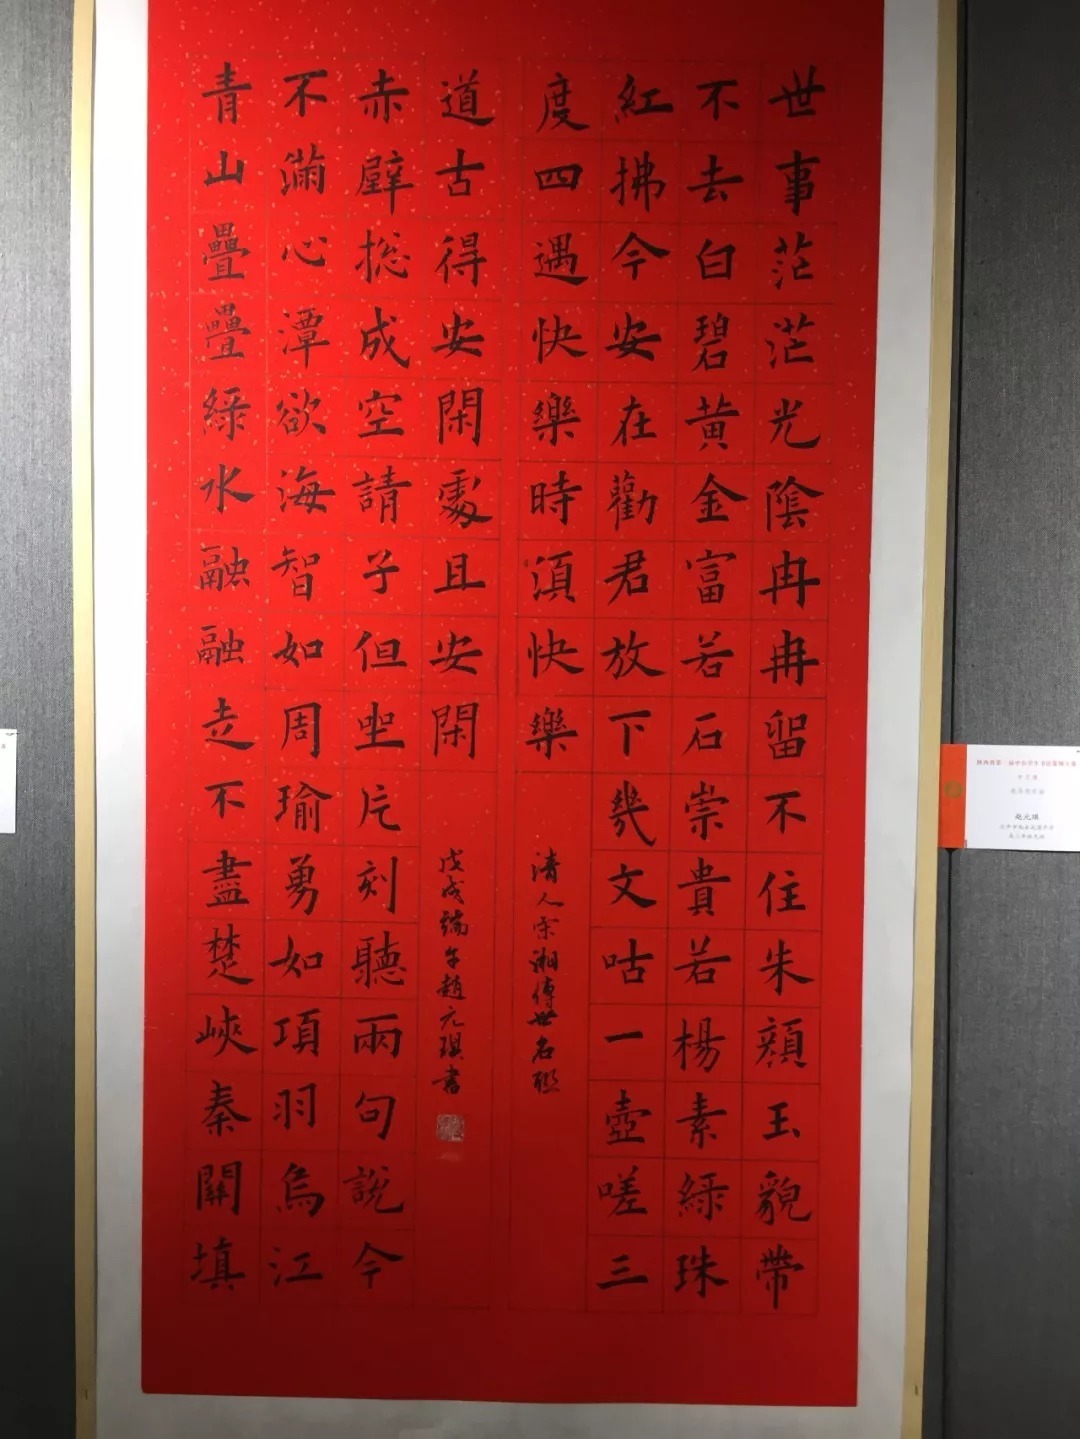 世事茫茫光陰冉冉留不住朱顏玉貌帶
不去白碧黃金富若石崇貴若楊素綠珠
紅拂今安在勸君放下幾文咕一壺嗟三
度四遇快樂時須快樂
清人宋湘傳世名聯
青山疊疊綠水融融走不盡楚峽秦關填
不滿心潭欲海智如周瑜勇如項羽烏江
赤壁総成空請子但坐片刻聽兩句說今
道古得安閑處且安閑
戊戌端午趙元琪書
赵元琪